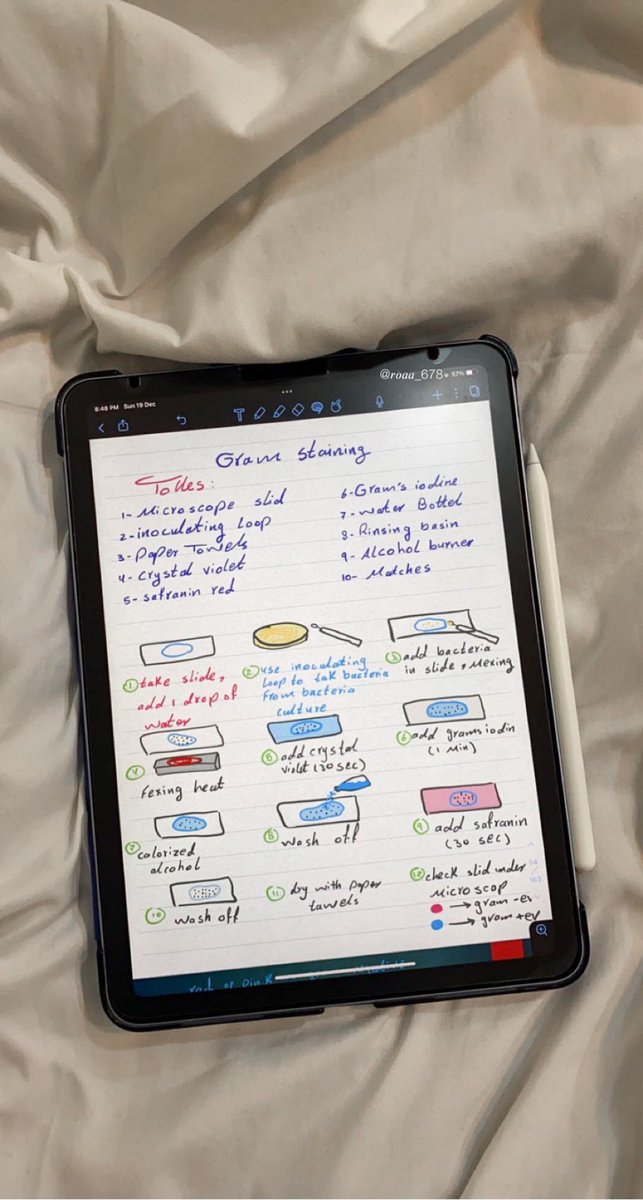 @roaa_678
57%
8:48 PM Sun 19 Dec
Gram staining
Tolles:
1- Microscope slid
2- inoculating loop
3- Paper Towels
4- Crystal violet
5- safranin red
6- Gram's iodine
7- water Bottel
8- Rinsing basin
9- Alcohol burner
10- Matches
① take slide,
add 1 drop of
water
② use inoculating
Loop to tak bacteria
from bacteria
culture
③ add bacteria
in slide, Mexing
④
fexing heat
⑤ add crystal
violet (30 sec)
⑥ add grams iodin
(1 Min)
⑦ colorized
alcohol
⑧ wash off
⑨ add safranin
(30 sec)
⑩ wash off
⑪ dry with paper
tawels
⑫ check slid under
Microscop
→ gram -ev
→ gram +ev
red or pink